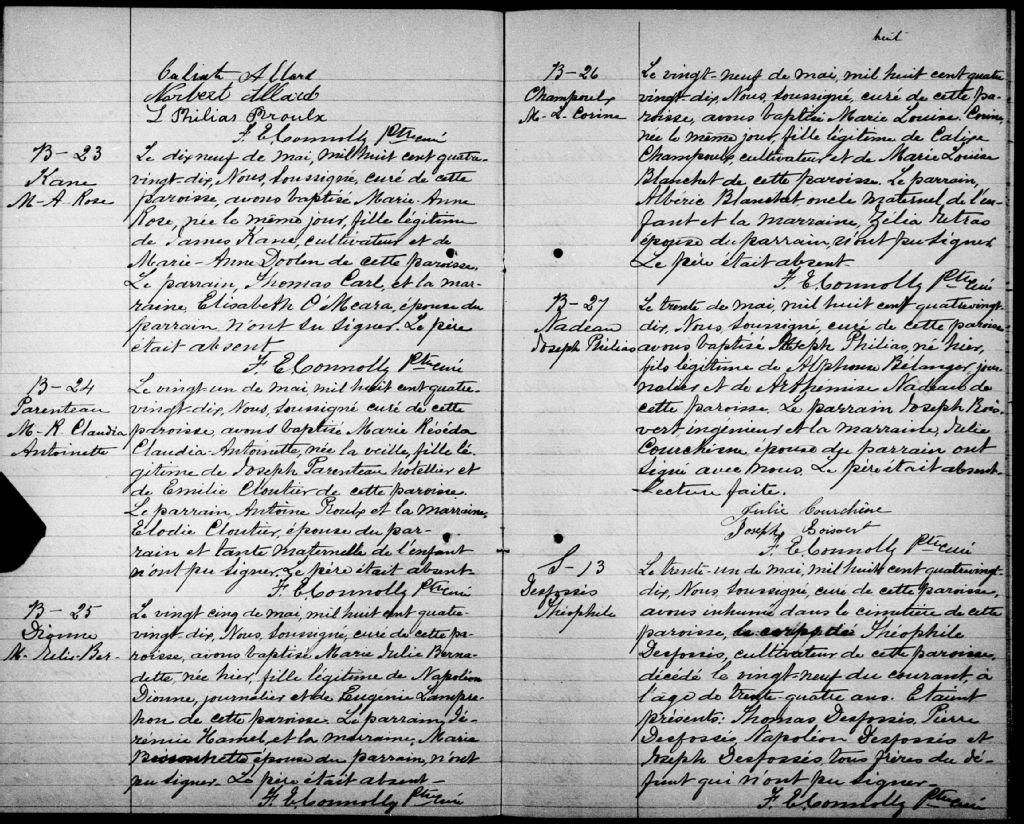 Calixte Allard
Norbert Allard
L Philias Proulx
F. E. Connolly Ptre curé
B-23
Kane
M-A Rose
Le dix neuf de mai, mil huit cent quatre-
vingt-dix, Nous, soussigné, curé de cette
paroisse, avons baptisé Marie-Anne
Rose, née le même jour, fille légitime
de James Kane, cultivateur et de
Marie-Anne Doolen de cette paroisse.
Le parrain, Thomas Carl, et la mar-
raine, Elisabeth O'Meara, épouse du
parrain n'ont su signer. Le père
était absent
F. E. Connolly Ptre curé
B-24
Parenteau
M-R-Claudia
Antoinette
Le vingt-un de mai, mil huit cent quatre-
vingt-dix, Nous, soussigné curé de cette
paroisse, avons baptisé Marie Réséda
Claudia-Antoinette, née la veille, fille lé-
gitime de Joseph Parenteau hotellier et
de Emilie Cloutier de cette paroisse.
Le parrain Antoine Proulx et la marraine,
Elodie Cloutier, épouse du par-
rain et tante maternelle de l'enfant
n'ont pu signer. Le père était absent-
F. E. Connolly Ptre curé
B-25
Dionne
M-Julie-Ber-
Le vingt cinq de mai, mil huit cent quatre-
vingt-dix, Nous, soussigné, curé de cette pa-
roisse, avons baptisé Marie Julie Berna-
dette, née hier, fille légitime de Napoléon
Dionne, journalier et de Eugenie Lampr-
hon de cette paroisse. Le parrain, Jé-
rémie Hamel, et la marraine, Marie
épouse du parrain, n'ont
pu signer. Le père était absent-
F. E. Connolly Ptre curé
huit
B-26
Champoulx
M-L-Corine
Le vingt-neuf de mai, mil huit cent quatre
vingt-dix, Nous, soussigné, curé de cette pa-
roisse, avons baptisé Marie Louise Corine,
née le même jour, fille légitime de Calixte
Champoux, cultivateur et de Marie Louise
Blanchet de cette paroisse. Le parrain,
Alberic Blanchet oncle maternel de l'en-
fant et la marraine, Zélia Retras
épouse du parrain, n'ont pu signer.
Le père était absent-
F. E. Connolly Ptre curé
B-27
Nadeau
Joseph Philias
Le trente de mai, mil huit cent quatrevingt-
dix, Nous, soussigné, curé de cette paroisse
avons baptisé Joseph Philias, né hier,
fils légitime de Alphonse Bélanger, jour-
nalier et de Arthémise Nadeau de
cette paroisse. Le parrain Joseph Bois-
vert, ingénieur et la marraine, Julie
Courchêsne épouse du parrain ont
signé avec nous. Le père était absent-
Lecture faite.
Julie Courchêne
Joseph Boisvert
F. E. Connolly Ptre curé
S-13
Desfossés
Théophile
Le trente-un de mai, mil huit cent quatrevingt-
dix, Nous, soussigné, curé de cette paroisse,
avons inhumé dans le cimetière de cette
paroisse, le corps de Théophile
Desfossés, cultivateur de cette paroisse,
décédé le vingt-neuf du courant à
l'âge de trente quatre ans. Etaient
présents: Thomas Desfossés, Pierre
Desfossés, Napoléon Desfossés et
Joseph Desfossés, tous frères du dé-
funt qui n'ont pu signer
F. E. Connolly Ptre curé